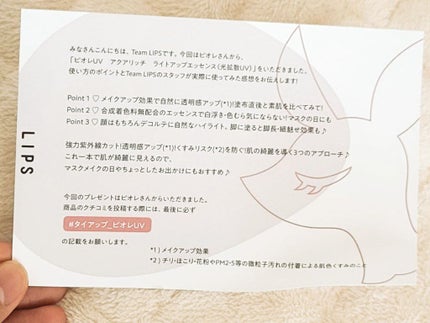 みなさんこんにちは、Team LIPSです。今回はビオレさんから、
「ビオレUV アクアリッチ ライトアップエッセンス(光拡散UV)」をいただきました。
使い方のポイントとTeam LIPSのスタッフが実際に使ってみた感想をお伝えします!
Point 1 ♡ メイクアップ効果で自然に透明感アップ(*1)!塗布直後と素肌を比べてみて!
Point 2 ♡ 合成着色料無配合のエッセンスで白浮き・色むら気にならない!マスクの日にも
Point 3 ♡ 顔はもちろんデコルテに自然なハイライト。脚に塗ると脚長・細魅せ効果も♪
強力紫外線カット!透明感アップ(*1)!くすみリスク(*2)を防ぐ!肌の綺麗を導く3つのアプローチ♪
これ一本で肌が綺麗に見えるので、
マスクメイクの日やちょっとしたお出かけにもおすすめ♪
今回のプレゼントはビオレさんからいただきました。
商品のクチコミを投稿する際には、最後に必ず
#タイアップ_ビオレUV
の記載をお願いします。
*1) メイクアップ効果
*2) チリ・ほこり・花粉やPM2・5等の微粒子汚れの付着による肌色くすみのこと
LIPS